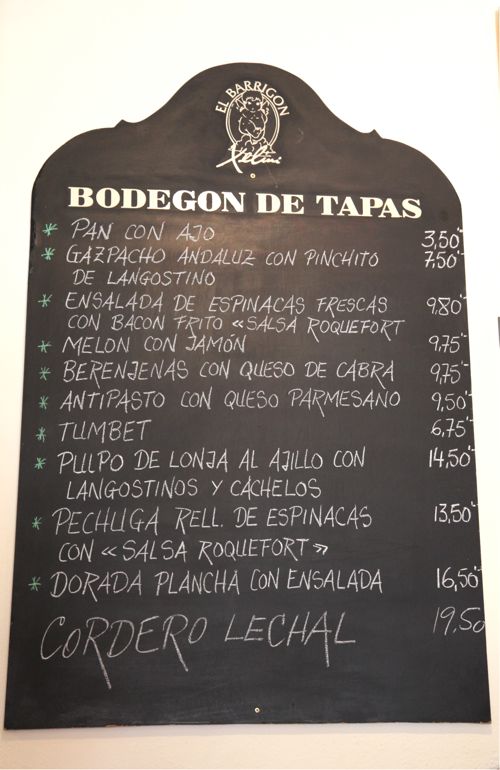 EL BARRIGON
Xelini
BODEGON DE TAPAS
* PAN CON AJO 3,50'-
* GAZPACHO ANDALUZ CON PINCHITO 7,50'-
DE LANGOSTINO
* ENSALADA DE ESPINACAS FRESCAS 9,80'-
CON BACON FRITO «SALSA ROQUEFORT
* MELON CON JAMÓN 9,75'-
* BERENJENAS CON QUESO DE CABRA 9,75'-
* ANTIPASTO CON QUESO PARMESANO 9,50'-
* TUMBET 6,75'-
* PULPO DE LONJA AL AJILLO CON 14,50'-
LANGOSTINOS Y CACHELOS
* PECHUGA RELL. DE ESPINACAS 13,50'-
CON «SALSA ROQUEFORT»
* DORADA PLANCHA CON ENSALADA 16,50'-
CORDERO LECHAL 19,50